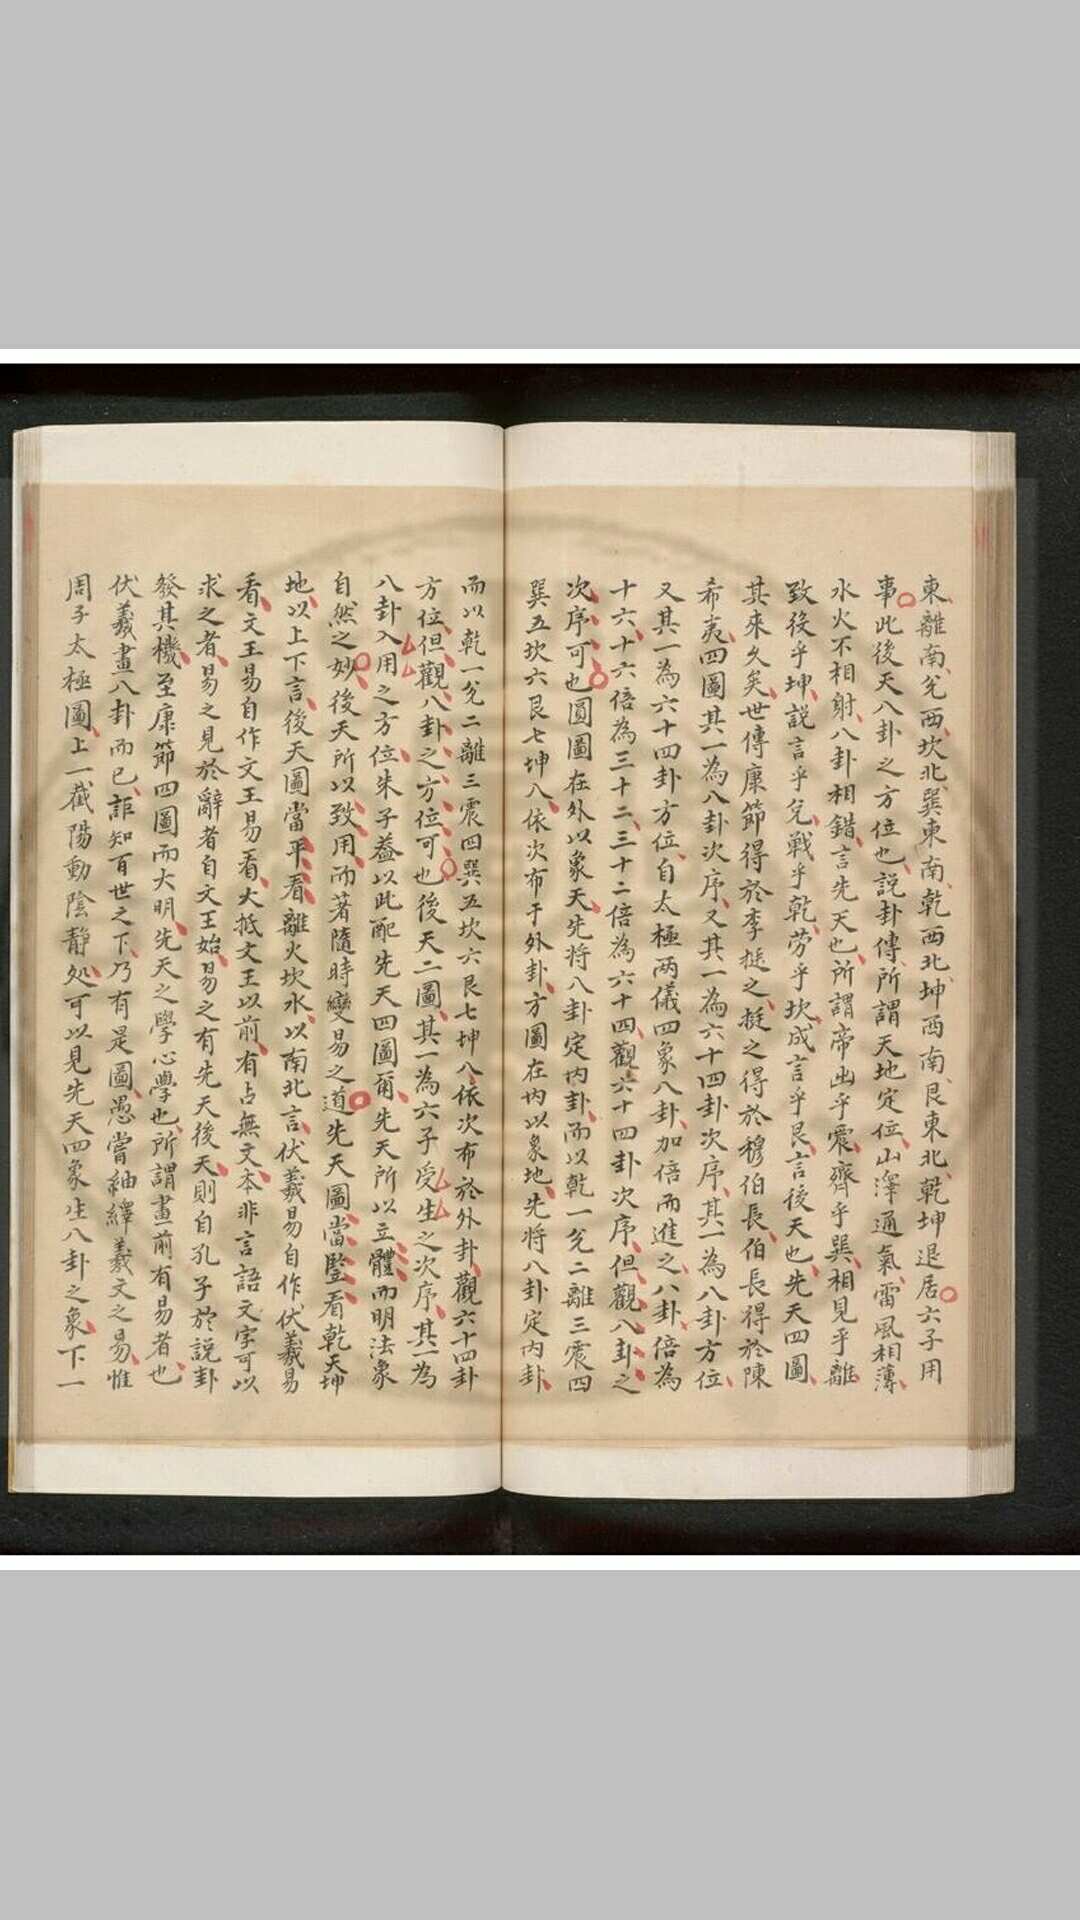 東離南兌西坎北巽東南乾西北坤西南艮東北乾坤退居六子用
事此後天八卦之方位也說卦傳所謂天地定位山澤通氣雷風相薄
水火不相射八卦相錯言先天也所謂帝出乎震齊乎巽相見乎離
致役乎坤說言乎兌戰乎乾勞乎坎成言乎艮言後天也先天四圖
其來久矣世傳康節得於李挺之挺之得於穆伯長伯長得於陳
希夷四圖其一為八卦次序又其一為六十四卦次序其一為八卦方位
又其一為六十四卦方位自太極兩儀四象八卦加倍而進之八卦倍為
十六十六倍為三十二三十二倍為六十四觀六十四卦次序但觀八卦之
次序可也圓圖在外以象天先將八卦定內卦而以乾一兌二離三震四
巽五坎六艮七坤八依次布于外卦方圖在內以象地先將八卦定內卦
而以乾一兌二離三震四巽五坎六艮七坤八依次布於外卦觀六十四卦
方位但觀八卦之方位可也後天二圖其一為六子受生之次序其一為
八卦入用之方位朱子蓋以此配先天四圖爾先天所以立體而明法象
自然之妙後天所以致用而著隨時變易之道先天圖當豎看乾天坤
地以上下言後天圖當平看離火坎水以南北言伏羲易自作伏羲易
看文王易自作文王易看大抵文王以前有占無文本非言語文字可以
求之者易之見於辭者自文王始易之有先天後天則自孔子於說卦
發其機至康節四圖而大明先天之學心學也所謂畫前有易者也
伏羲畫八卦而已詎知百世之下乃有是圖愚嘗紬繹羲文之易惟
周子太極圖上一截陽動陰靜処可以見先天四象生八卦之象下一